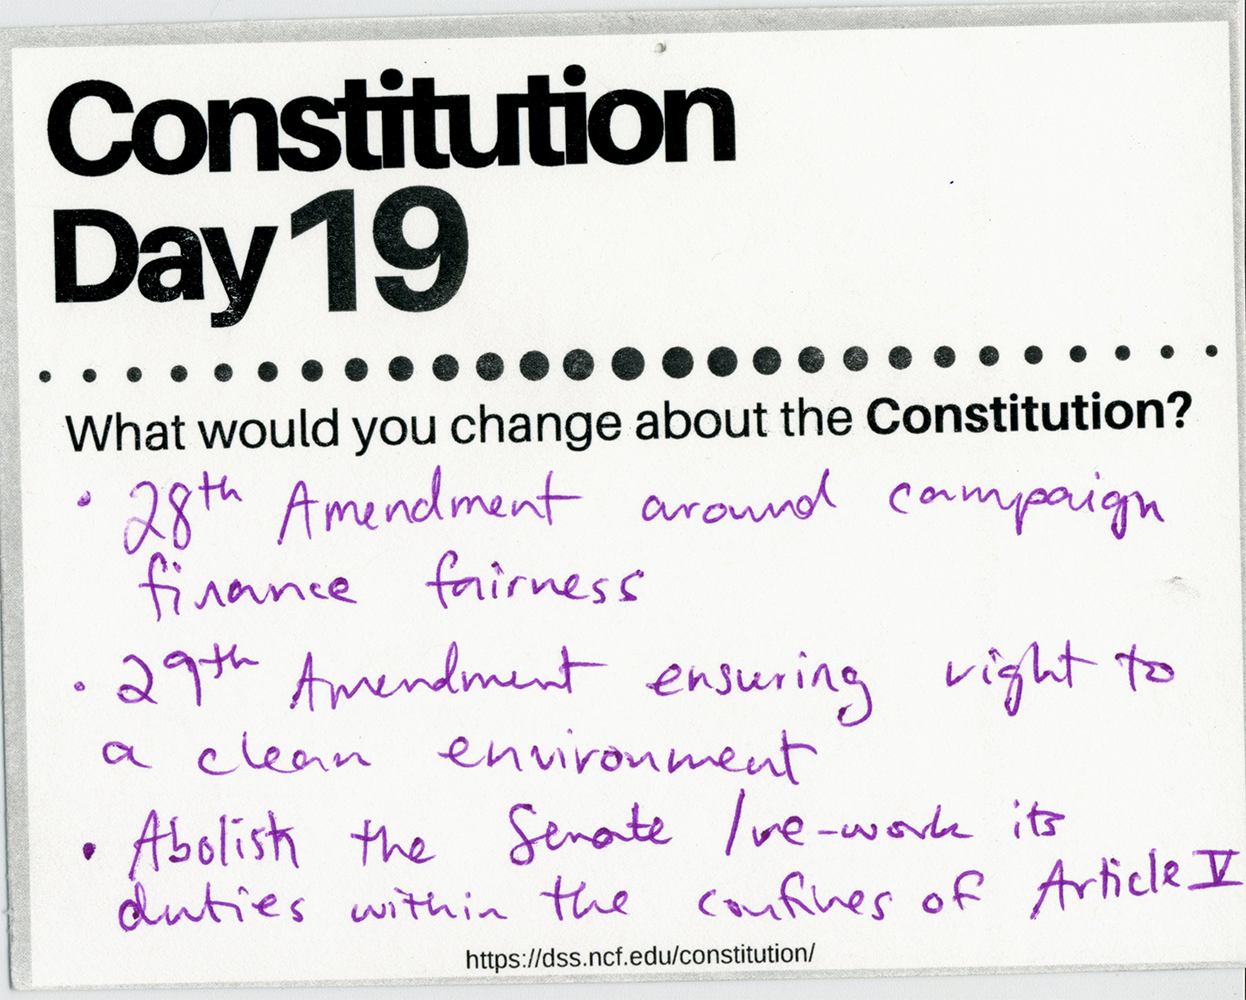 Constitution
Day 19
What would you change about the Constitution?
• 28th Amendment around campaign
finance fairness
• 29th Amendment ensuring right to
a clean environment
• Abolish the Senate / re-work its
duties within the confines of Article V
https://dss.ncf.edu/constitution/